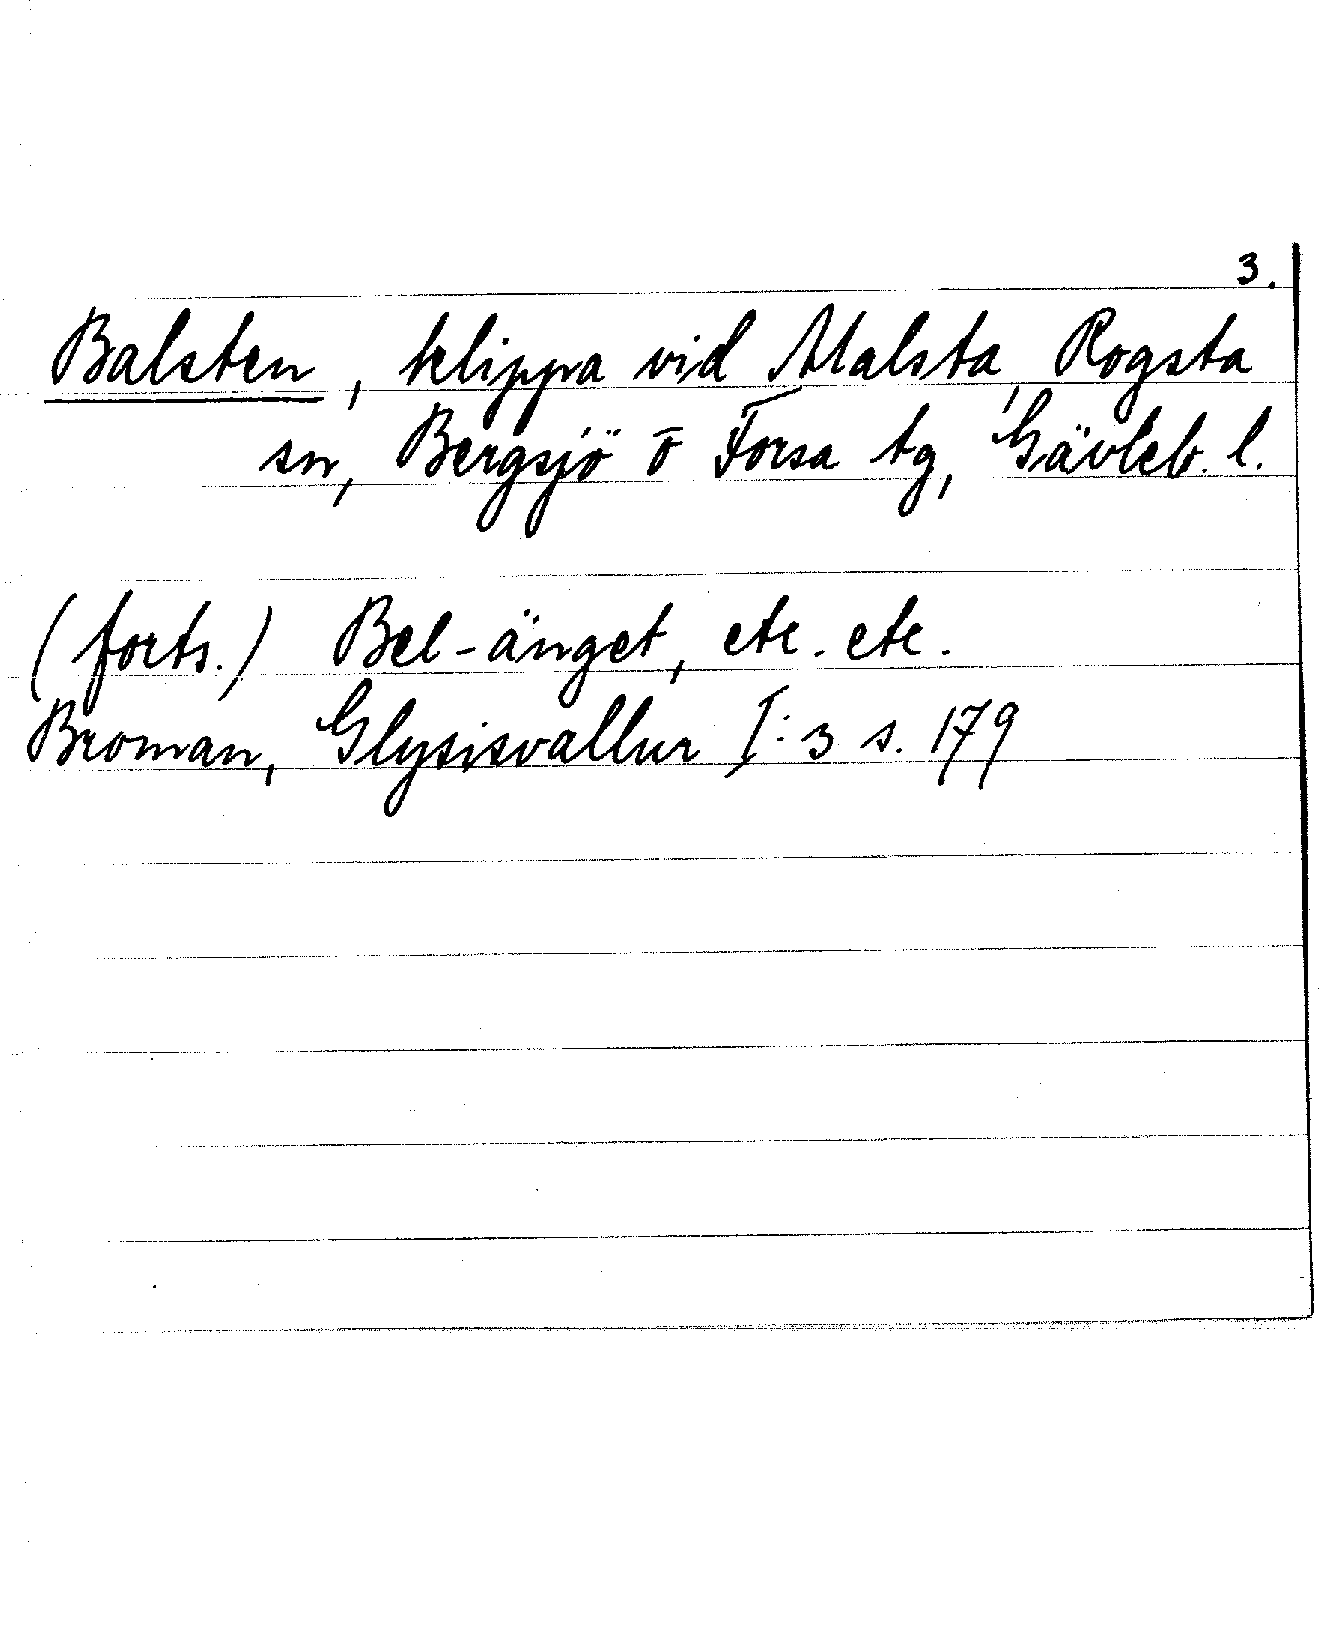 3.
Balsten, klippa vid Malsta, Rogsta
sn, Bergsjö o Forsa tg, Gävleb. l.
(forts.) Bel-änget, etc. etc.
Broman, Glysisvallur I:3 s. 179